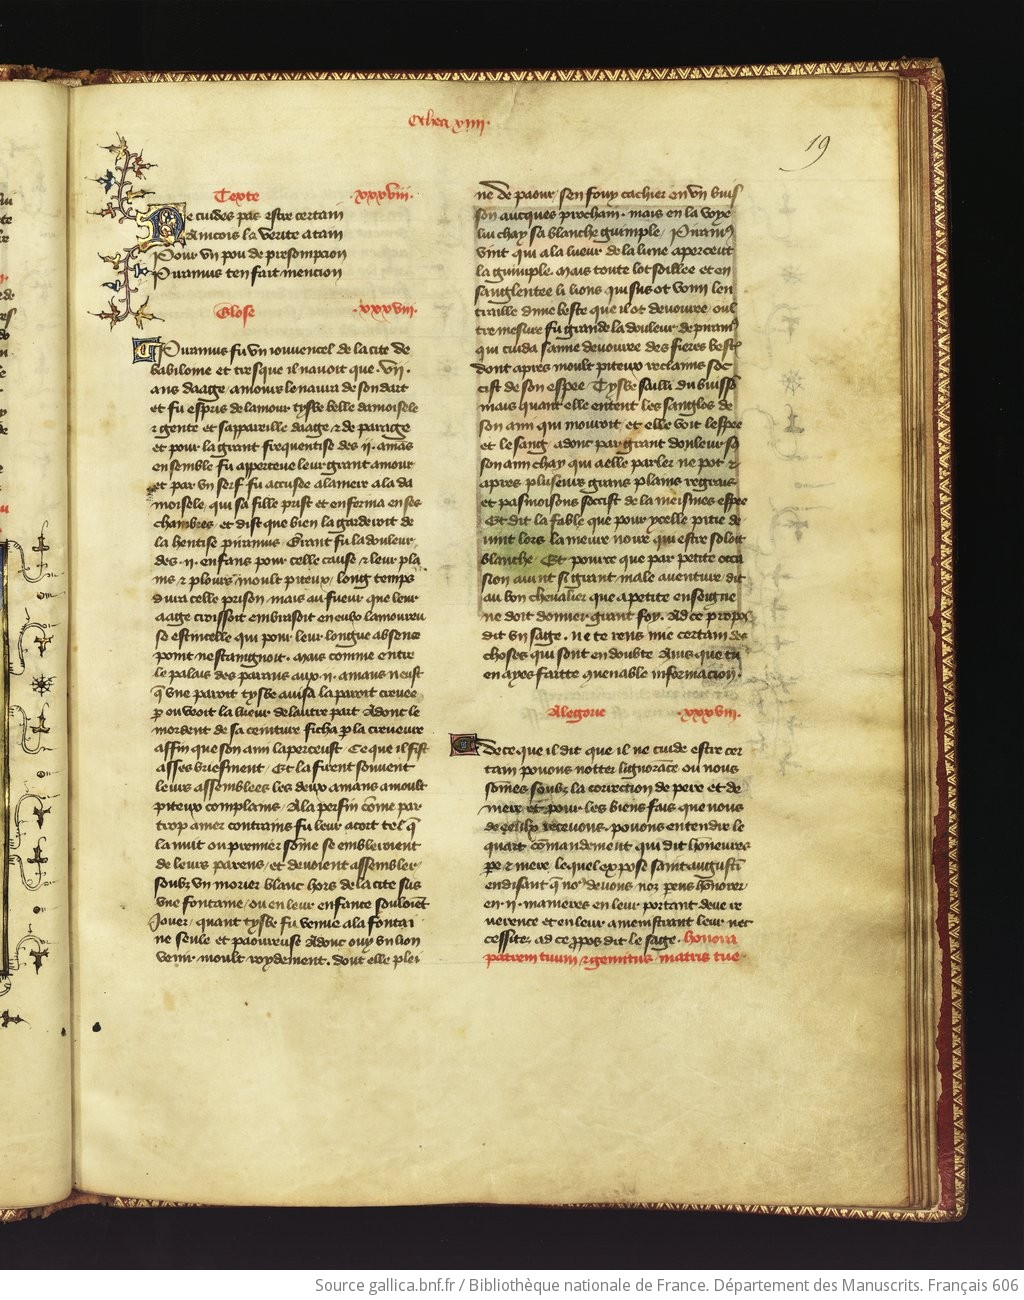 Othea xviii.
19
Texte .xxxviii.
Ne cuides pas estre certain
dancois la verite atain
Pour un pou de presompcion
Piramus ten fait mencion
Glose .xxxviii.
Piramus fu un jouvencel de la cite de
babilome et tresque il navoit que .vii.
ans daage amours le navra de son dart
et fu espris de lamour tysbe belle damoisele
et gente et sa pareille daage et de parage
et pour la grant frequentise des .ii. amans
ensemble fu apperceue leur grant amour
et par un serf fu accusee a la mere a la da
moisele, qui sa fille prist et enferma en ses
chambres et dist que bien la garderoit de
la hentise piramus. Grant fu la douleur
des .ii. enfans pour celle cause et leur pla
ins et plours moult piteux long temps
dura celle prison mais au fueur que leur
aage croissoit embrasoit en eulx lamoureu
se estincelle qui pour leur longue absence
point nestaingnoit. Mais comme entre
le palais des parens aux .ii. amans neust
q̃ une paroit tysbe avisa la paroit crevee
p ou veoit la lueur de lautre part adont le
mordent de sa ceinture ficha p la creveure
affin que son ami laperceust. Ce que il fist
asses briefment. Et la firent souvent
leurs assemblees les deux amans a moult
piteux complains. A la perfin cõme par
trop amer contrains fu leur acort tel q̃
la nuit ou premier sõme se embleroient
de leurs parens et devoient assembler
soubz un morier blanc hors de la cite sus
une fontaine ou en leur enfance souloiẽt
jouer. quant tysbe fu venue a la fontai
ne seule et paoureuse adonc ouy un lion
venir moult roydement. dont elle plei
ne de paour sen fouy cachier en un buis
son aucques prochain. mais en la voye
lui chay sa blanche guimple. Piramus
vint qui a la lueur de la lune apercent
la guimple. Mais toute lot soillee et en
sanglentee li lions qui sus ot vomi len
traille dune beste que il ot devouree. oul
tre mesure fu grande la douleur de piramus
qui cuida samie devouree des fieres bestes
dont apres moult piteux reclaims soc
cist de son espee. Tysbe sailli du buisson
mais quant elle entent les sanglos de
son ami qui mouroit et elle voit lespee
et le sang adonc par grant douleur sus
son ami chay qui a elle parler ne pot et
apres plusieurs grans plains regrais
et pasmoisons soccist de la meismes espee
Et dit la fable que pour ycelle pitie de
vint lors la meure noire qui estre soloit
blanche. Et pource que par petite occa
sion avint si grant male aventure dit
au bon chevalier que a petite enseigne
ne doit donner grant foy. Ad ce propos
dit un sage. ne te rens mie certain des
choses qui sont en doubte ains que tu
en ayes faitte quenable informacion.
Alegorie .xxxviii.
De ce que il dit que il ne cuide estre cer
tain pouons notter lignorãce ou nous
sõmes soubz la correction de pere et de
mere et pour les biens fais que nous
de ceulx recevons. pouons entendre le
quart cõmandement qui dit hõneures
pe et mere. lequel expose saint augustĩ
en disant q̃ nos devons noz pens hõnorer
en .ii. manieres en leur portant deue re
verence et en leur amenistrant leur nec
cessite. ad ce ppos dit le sage. honora
patrem tuum et gemitus matris tue
Source gallica.bnf.fr / Bibliothèque nationale de France. Département des Manuscrits. Français 606